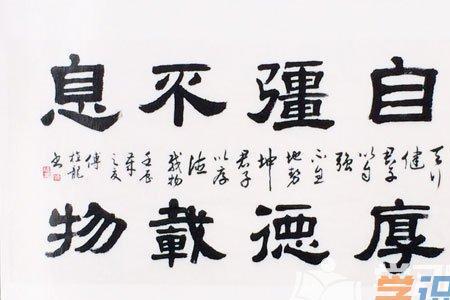 自彊不息
天行健君子以自强不息地势坤君子以厚德载物壬辰歲之夏傅
厚德載物
学识